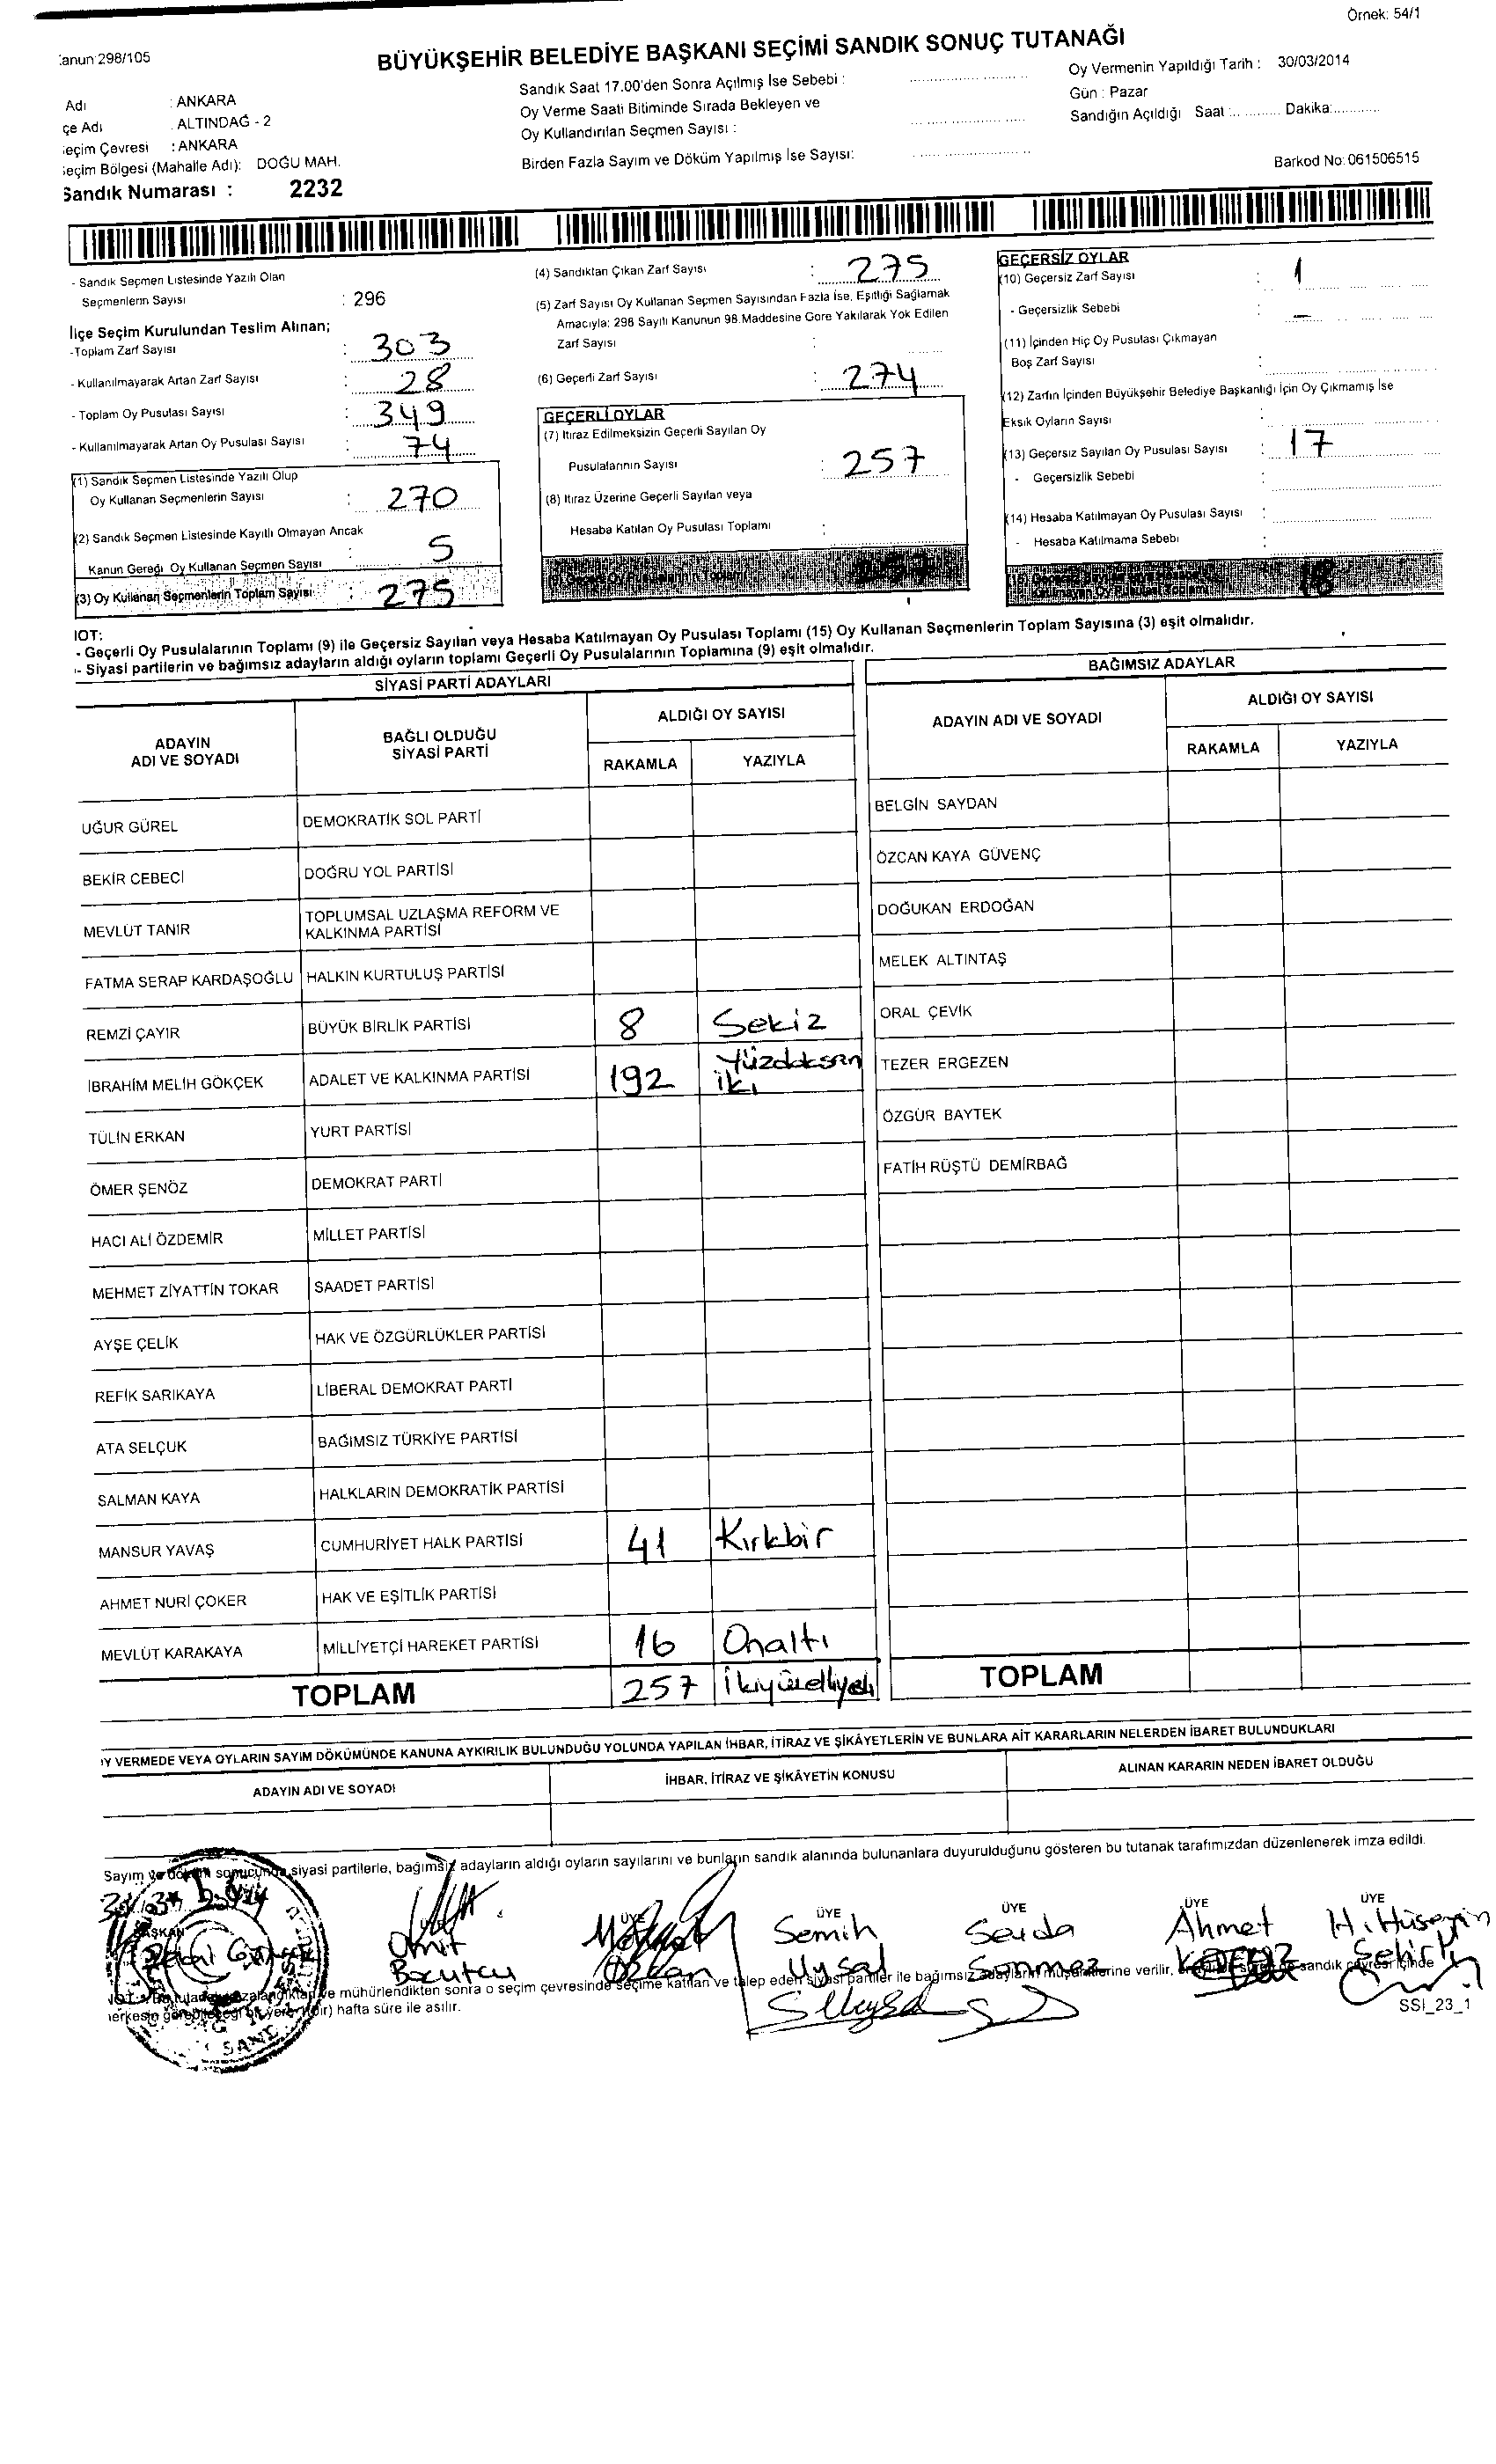 Örnek: 54/1
anun 298/105
BÜYÜKŞEHİR BELEDİYE BAŞKANI SEÇİMİ SANDIK SONUÇ TUTANAĞI
Adı : ANKARA
çe Adı : ALTINDAĞ - 2
eçim Çevresi : ANKARA
eçim Bölgesi (Mahalle Adı): DOĞU MAH.
Sandık Numarası : 2232
Sandık Saat 17.00'den Sonra Açılmış İse Sebebi :
Oy Verme Saati Bitiminde Sırada Bekleyen ve
Oy Kullandırılan Seçmen Sayısı :
Birden Fazla Sayım ve Döküm Yapılmış İse Sayısı:
Oy Vermenin Yapıldığı Tarih : 30/03/2014
Gün : Pazar
Sandığın Açıldığı Saat :............ Dakika:............
Barkod No: 061506515
- Sandık Seçmen Listesinde Yazılı Olan
Seçmenlerin Sayısı : 296
İlçe Seçim Kurulundan Teslim Alınan;
-Toplam Zarf Sayısı : 303
- Kullanılmayarak Artan Zarf Sayısı : 28
- Toplam Oy Pusulası Sayısı : 349
- Kullanılmayarak Artan Oy Pusulası Sayısı : 74
(1) Sandık Seçmen Listesinde Yazılı Olup
Oy Kullanan Seçmenlerin Sayısı : 270
(2) Sandık Seçmen Listesinde Kayıtlı Olmayan Ancak
Kanun Gereği Oy Kullanan Seçmen Sayısı : 5
(3) Oy Kullanan Seçmenlerin Toplam Sayısı : 275
(4) Sandıktan Çıkan Zarf Sayısı : 275
(5) Zarf Sayısı Oy Kullanan Seçmen Sayısından Fazla İse, Eşitliği Sağlamak
Amacıyla; 298 Sayılı Kanunun 98.Maddesine Göre Yakılarak Yok Edilen
Zarf Sayısı :
(6) Geçerli Zarf Sayısı : 274
GEÇERLİ OYLAR
(7) İtiraz Edilmeksizin Geçerli Sayılan Oy
Pusulalarının Sayısı : 257
(8) İtiraz Üzerine Geçerli Sayılan veya
Hesaba Katılan Oy Pusulası Toplamı :
(9) Geçerli Oy Pusulalarının Toplamı 257
GEÇERSİZ OYLAR
(10) Geçersiz Zarf Sayısı : 1
- Geçersizlik Sebebi : -
(11) İçinden Hiç Oy Pusulası Çıkmayan
Boş Zarf Sayısı :
(12) Zarfın İçinden Büyükşehir Belediye Başkanlığı İçin Oy Çıkmamış İse
Eksik Oyların Sayısı :
(13) Geçersiz Sayılan Oy Pusulası Sayısı : 17
- Geçersizlik Sebebi :
(14) Hesaba Katılmayan Oy Pusulası Sayısı :
- Hesaba Katılmama Sebebi :
(15) Geçersiz Sayılan veya Hesaba
Katılmayan Oy Pusulası Toplamı 18
IOT:
- Geçerli Oy Pusulalarının Toplamı (9) ile Geçersiz Sayılan veya Hesaba Katılmayan Oy Pusulası Toplamı (15) Oy Kullanan Seçmenlerin Toplam Sayısına (3) eşit olmalıdır.
- Siyasi partilerin ve bağımsız adayların aldığı oyların toplamı Geçerli Oy Pusulalarının Toplamına (9) eşit olmalıdır.
SİYASİ PARTİ ADAYLARI
ADAYIN ADI VE SOYADI BAĞLI OLDUĞU SİYASİ PARTİ ALDIĞI OY SAYISI
RAKAMLA YAZIYLA
UĞUR GÜREL DEMOKRATİK SOL PARTİ
BEKİR CEBECİ DOĞRU YOL PARTİSİ
MEVLÜT TANIR TOPLUMSAL UZLAŞMA REFORM VE KALKINMA PARTİSİ
FATMA SERAP KARDAŞOĞLU HALKIN KURTULUŞ PARTİSİ
REMZİ ÇAYIR BÜYÜK BİRLİK PARTİSİ 8 Sekiz
İBRAHİM MELİH GÖKÇEK ADALET VE KALKINMA PARTİSİ 192 iki
TÜLİN ERKAN YURT PARTİSİ
ÖMER ŞENÖZ DEMOKRAT PARTİ
HACI ALİ ÖZDEMİR MİLLET PARTİSİ
MEHMET ZİYATTİN TOKAR SAADET PARTİSİ
AYŞE ÇELİK HAK VE ÖZGÜRLÜKLER PARTİSİ
REFİK SARIKAYA LİBERAL DEMOKRAT PARTİ
ATA SELÇUK BAĞIMSIZ TÜRKİYE PARTİSİ
SALMAN KAYA HALKLARIN DEMOKRATİK PARTİSİ
MANSUR YAVAŞ CUMHURİYET HALK PARTİSİ 41 Kırkbir
AHMET NURİ ÇOKER HAK VE EŞİTLİK PARTİSİ
MEVLÜT KARAKAYA MİLLİYETÇİ HAREKET PARTİSİ 16 Onaltı
TOPLAM 257
BAĞIMSIZ ADAYLAR
ADAYIN ADI VE SOYADI ALDIĞI OY SAYISI
RAKAMLA YAZIYLA
BELGİN SAYDAN
ÖZCAN KAYA GÜVENÇ
DOĞUKAN ERDOĞAN
MELEK ALTINTAŞ
ORAL ÇEVİK
TEZER ERGEZEN
ÖZGÜR BAYTEK
FATİH RÜŞTÜ DEMİRBAĞ
TOPLAM
Y VERMEDE VEYA OYLARIN SAYIM DÖKÜMÜNDE KANUNA AYKIRILIK BULUNDUĞU YOLUNDA YAPILAN İHBAR, İTİRAZ VE ŞİKÂYETLERİN VE BUNLARA AİT KARARLARIN NELERDEN İBARET BULUNDUKLARI
ADAYIN ADI VE SOYADI İHBAR, İTİRAZ VE ŞİKÂYETİN KONUSU ALINAN KARARIN NEDEN İBARET OLDUĞU
Sayım ve döküm sonucunda siyasi partilerle, bağımsız adayların aldığı oyların sayılarını ve bunların sandık alanında bulunanlara duyurulduğunu gösteren bu tutanak tarafımızdan düzenlenerek imza edildi.
BAŞKAN ÜYE ÜYE ÜYE ÜYE ÜYE
Ümit Semih Seda Ahmet H. Hüseyin
Özkan Uysal Sönmez
ve mühürlendikten sonra o seçim çevresinde seçime katılan ve talep eden siyasi partiler ile bağımsız adayların müşahitlerine verilir, sandık çevresi içinde
herkesin görebileceği bir yere (bir) hafta süre ile asılır.
SSI_23_1